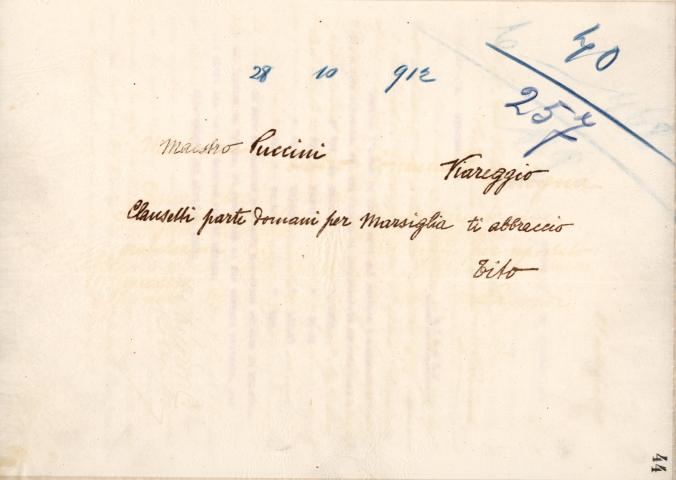 40
257
28 10 912
Maestro Puccini
Viareggio
Clausetti parte domani per Marsiglia ti abbraccio
Tito
44